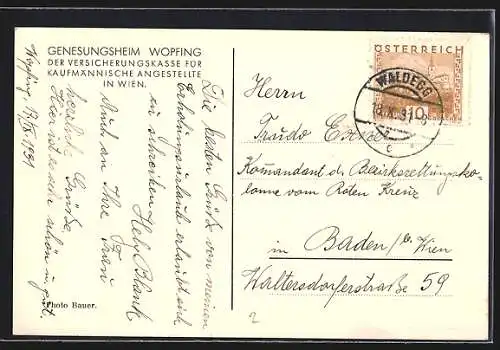 GENESUNGSHEIM WOPFING
DER VERSICHERUNGSKASSE FÜR
KAUFMÄNNISCHE ANGESTELLTE
IN WIEN.
Wopfing, 17./IX. 1931
Die besten Grüße von meinem
Erholungsurlaube erlaubt sich
zu schreiben
Auch an Ihre Frau
herzliche Grüße.
Hier ist es sehr schön u. gut.
Photo Bauer.
ÖSTERREICH
10
WALDEGG
Herrn
Kommandant der Bezirksrettungsko-
lonne vom Roten Kreuz
in Baden b/ Wien
Waltersdorferstraße 59
2